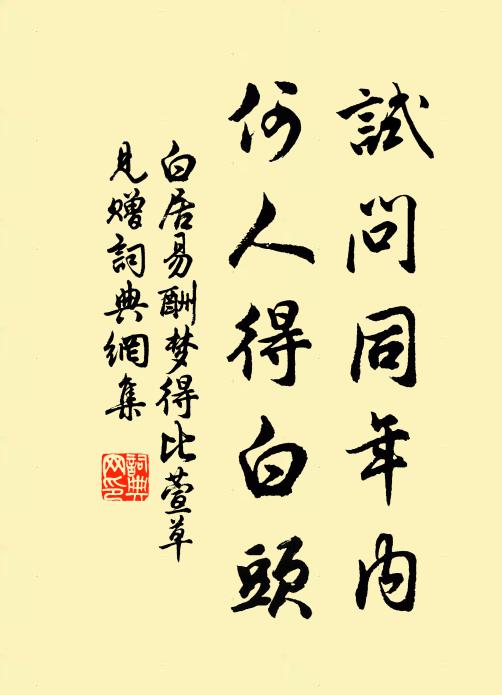 試問同年內
何人得白頭
白居易酬梦得比萱草
見贈詞典網集
詞典
网印